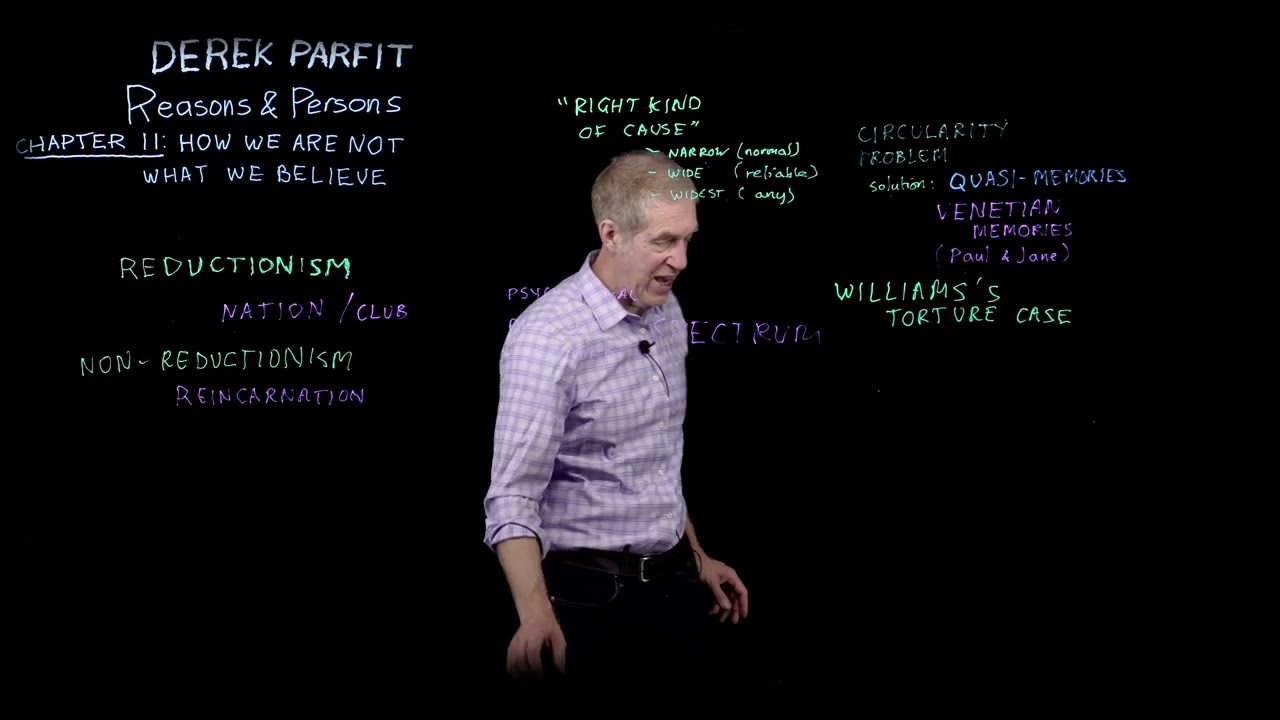 DEREK PARFIT
Reasons & Persons
CHAPTER 11: HOW WE ARE NOT
WHAT WE BELIEVE
REDUCTIONISM
NATION / CLUB
NON-REDUCTIONISM
REINCARNATION
"RIGHT KIND
OF CAUSE"
- NARROW (normal)
- WIDE (reliable)
- WIDEST (any)
CIRCULARITY
PROBLEM
solution: QUASI-MEMORIES
VENETIAN
MEMORIES
(Paul & Jane)
WILLIAMS'S
TORTURE CASE